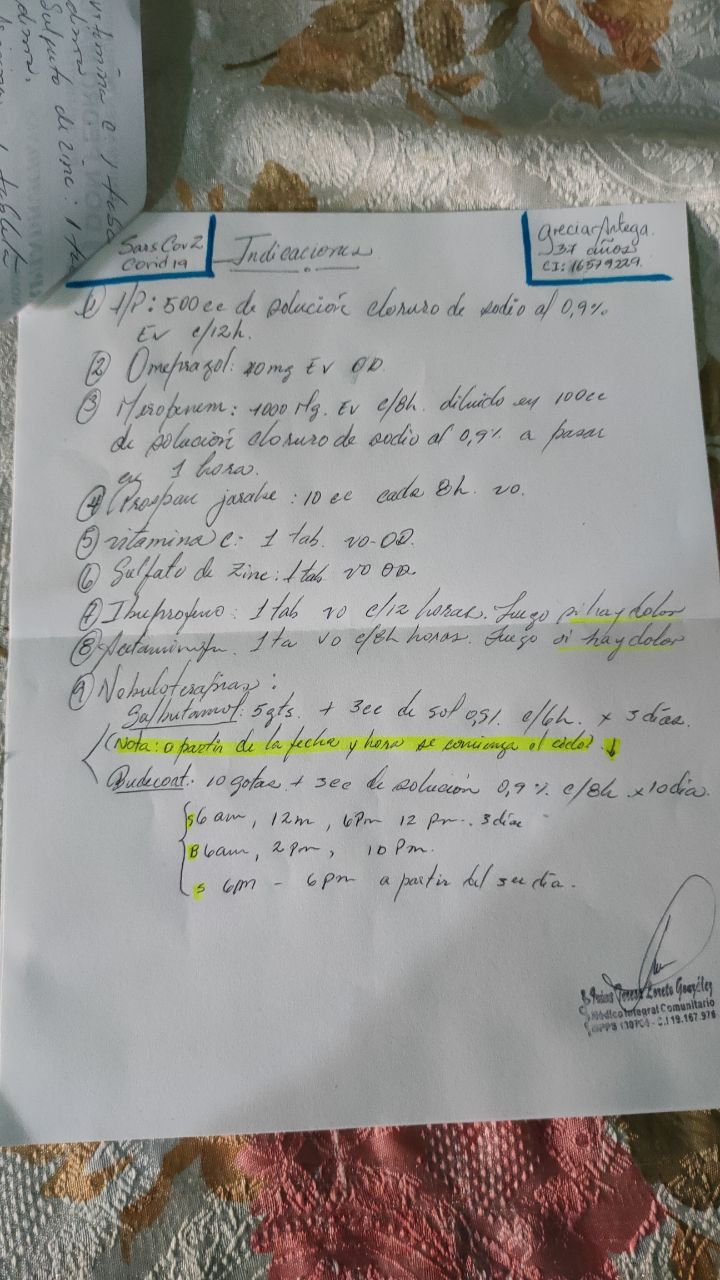 vitamina c: 1 tab
Sulfato de zinc: 1 ta
tableta
SarsCov2
Covid19
Indicaciones
grecia Artega.
37 años
CI: 16579229.
① H/P: 500cc de solución cloruro de sodio al 0,9%
EV c/12h.
② Omeprazol: 40mg EV OD.
③ Meropenem: 1000 Mg. EV c/8h. diluido en 100cc
de solución cloruro de sodio al 0,9% a pasar
en 1 hora.
④ Prospan jarabe: 10 cc cada 8h. vo.
⑤ vitamina c: 1 tab. vo-OD.
⑥ Sulfato de zinc: 1tab vo OD.
⑦ Ibuprofeno: 1 tab vo c/12 horas. Luego si hay dolor
⑧ 1ta vo c/8h horas. Luego si hay dolor
⑨ Nobuloterapias:
Salbutamol: 5gts. + 3cc de sol 0,9% c/6h. x 3 días.
(Nota: a partir de la fecha y hora se comienza el ciclo) ↓
Budecort: 10 gotas + 3cc de solución 0,9% c/8h x10 dia.
S 6 am, 12m, 6Pm 12 pm. 3 días
B 6am, 2pm, 10 Pm.
S 6m - 6pm a partir del 3er día.
Teresa Loreto González
Médico Integral Comunitario
C.I 19.167.976